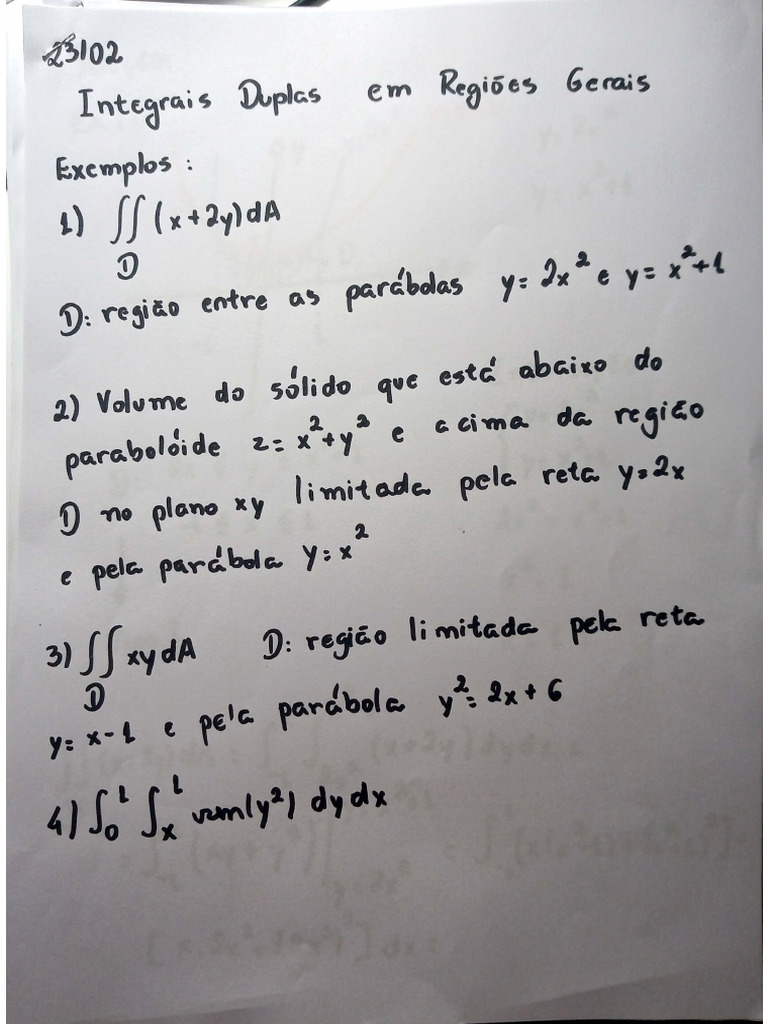 23/02
Integrais Duplas em Regiões Gerais
Exemplos:
1) ∬(x+2y)dA
D
D: região entre as parábolas y=2x² e y=x²+1
2) Volume do sólido que está abaixo do
parabolóide z=x²+y² e acima da região
D no plano xy limitada pela reta y=2x
e pela parábola y=x²
3) ∬xydA D: região limitada pela reta
D
y=x-1 e pela parábola y²=2x+6
4) ∫₀¹ ∫ₓ¹ sen(y²) dydx